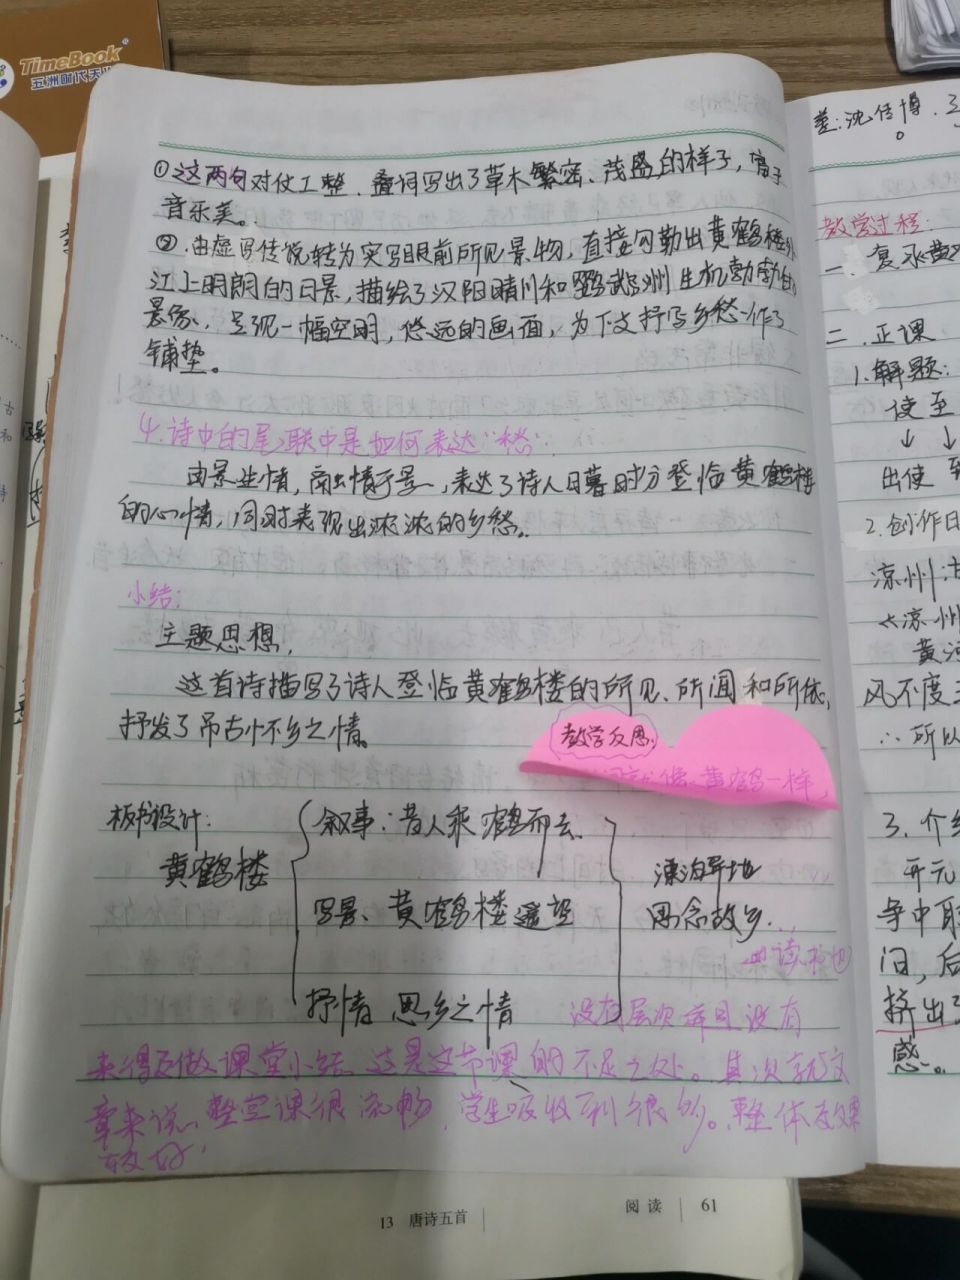 TimeBook
五洲时代天
①这两句对仗工整,叠词写出了草木繁密、茂盛的样子,富于
音乐美。
②由虚写传说转为实写眼前所见景物,直接勾勒出黄鹤楼外
江上明朗的日景,描绘了汉阳晴川和鹦鹉洲生机勃勃的
景象,呈现一幅空明,悠远的画面,为下文抒写乡愁作了
铺垫。
4.诗中的尾联中是如何表达“愁”
由景生情,寓情于景,表达了诗人日暮时分登临黄鹤楼
的心情,同时表现出浓浓的乡愁。
小结:
主题思想,
这首诗描写了诗人登临黄鹤楼的所见、所闻和所感,
抒发了吊古怀乡之情。
教学反思
黄鹤一样,
板书设计:
黄鹤楼
叙事:昔人乘鹤而去
写景、黄鹤楼遥望
抒情 思乡之情
漂泊异地
思念故乡
没有层次 并且没有
来得及做课堂小结 这是这节课的不足之处。其次就文
章来说,整堂课很流畅,学生吸收到很多。整体效果
较好
13 唐诗五首
阅读 61
差:沈传博
教学过程:
一、复
二.正课
1.解题:
使至
↓ ↓
出使
2.创作
凉州
凉州
黄河
风不度
∴所以
3.介绍
开元
争中
汨,后
挤出了
感。